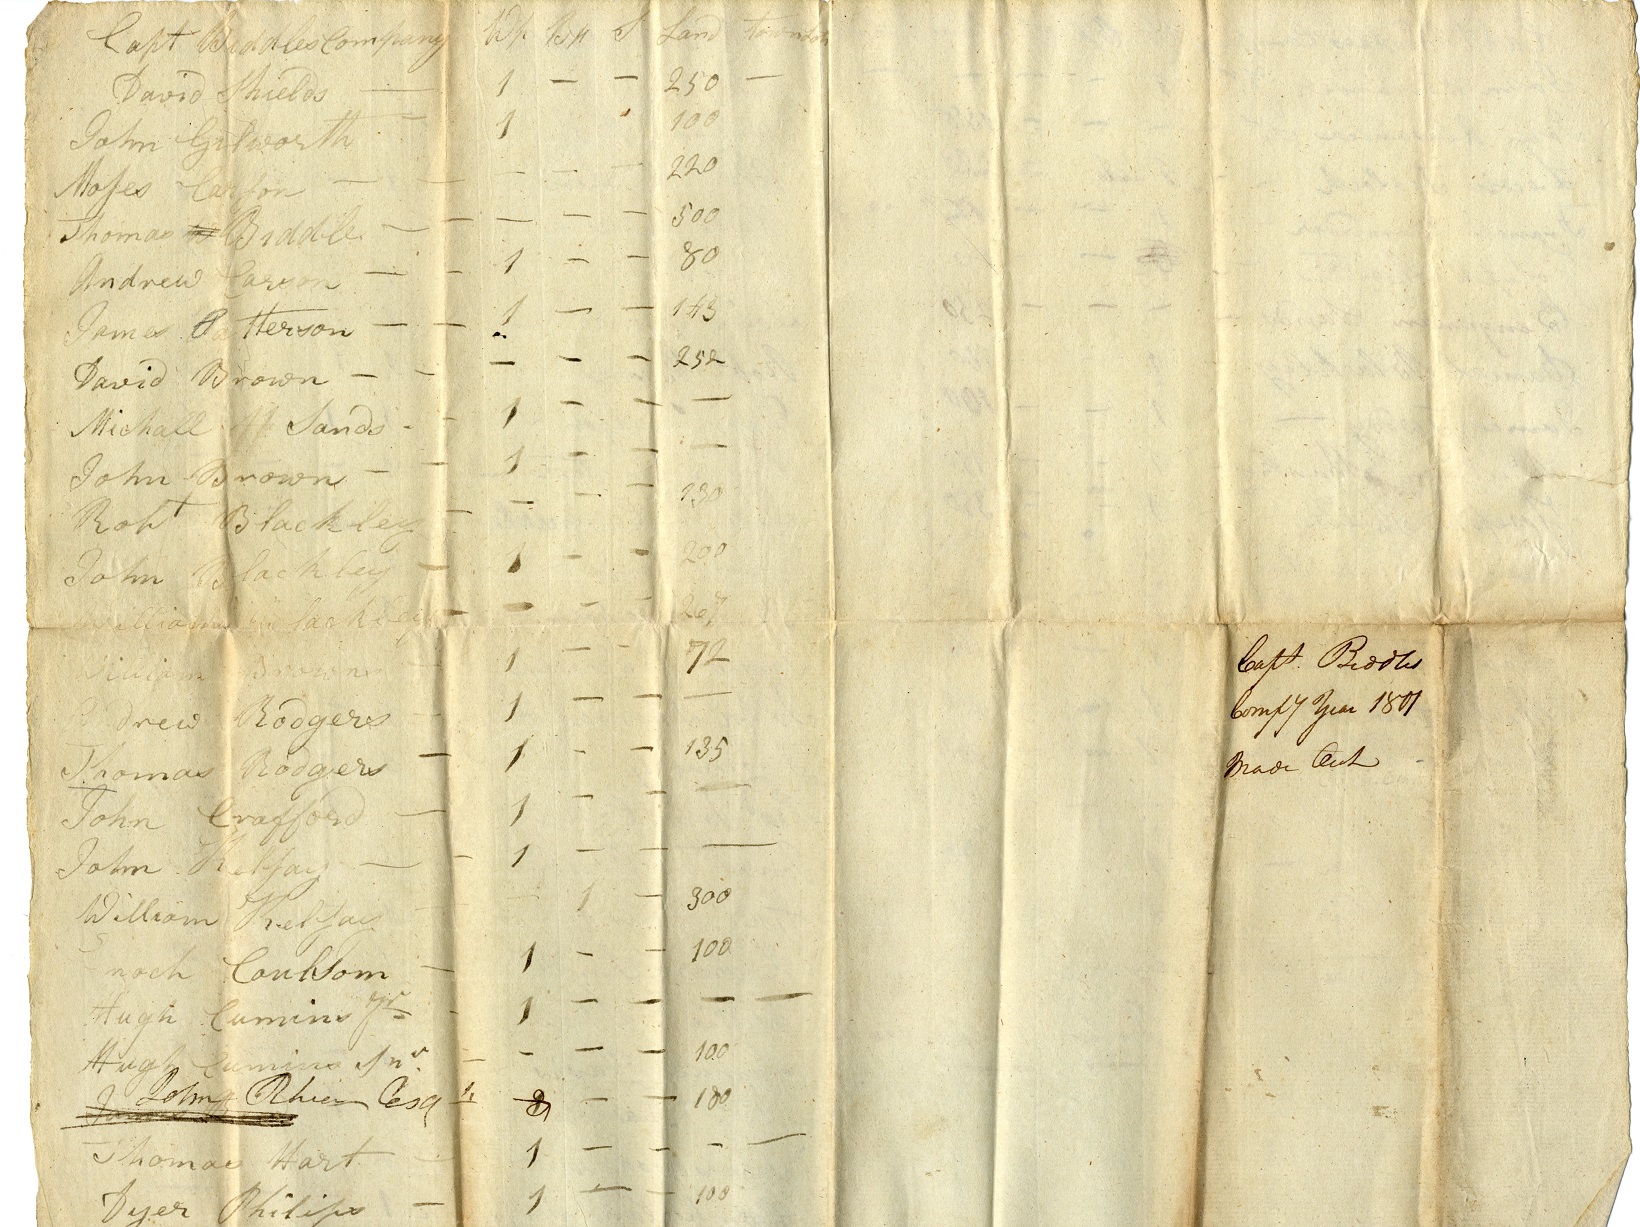 Capt Biddles Company Wp Bp S Land town lots
David Shields — 1 — — 250 —
John Gilworth — 1 100
Moses Carson — — — — — 220
Thomas Biddle — — — — — 500
Andrew Carson — — 1 — — 80
James Patterson — — 1 — — 143
David Brown — — — — — 252
Michall Sands - - 1 — — —
John Brown — — 1 — — —
Robt Blackley — — — — 130
John Blackley — 1 — — 200
William Blackley — — — — 267
William Brown — 1 — — 72
drew Rodgers — 1 — — —
Thomas Rodgers — 1 — — 135
John Crafford — 1 — — —
John Kelsay — — 1 — — —
William Kelsay — — 1 — 300
Enoch Coulsom — 1 — — 100
Hugh Cumins Jr — 1 — — — —
Hugh Cumins Snr — — — — 100
John Rhea Esqr — — 100
Thomas Hart — 1 — — — —
Dyer Philips — 1 — — 100
Capt. Biddles
Compy Year 1801
Made Out